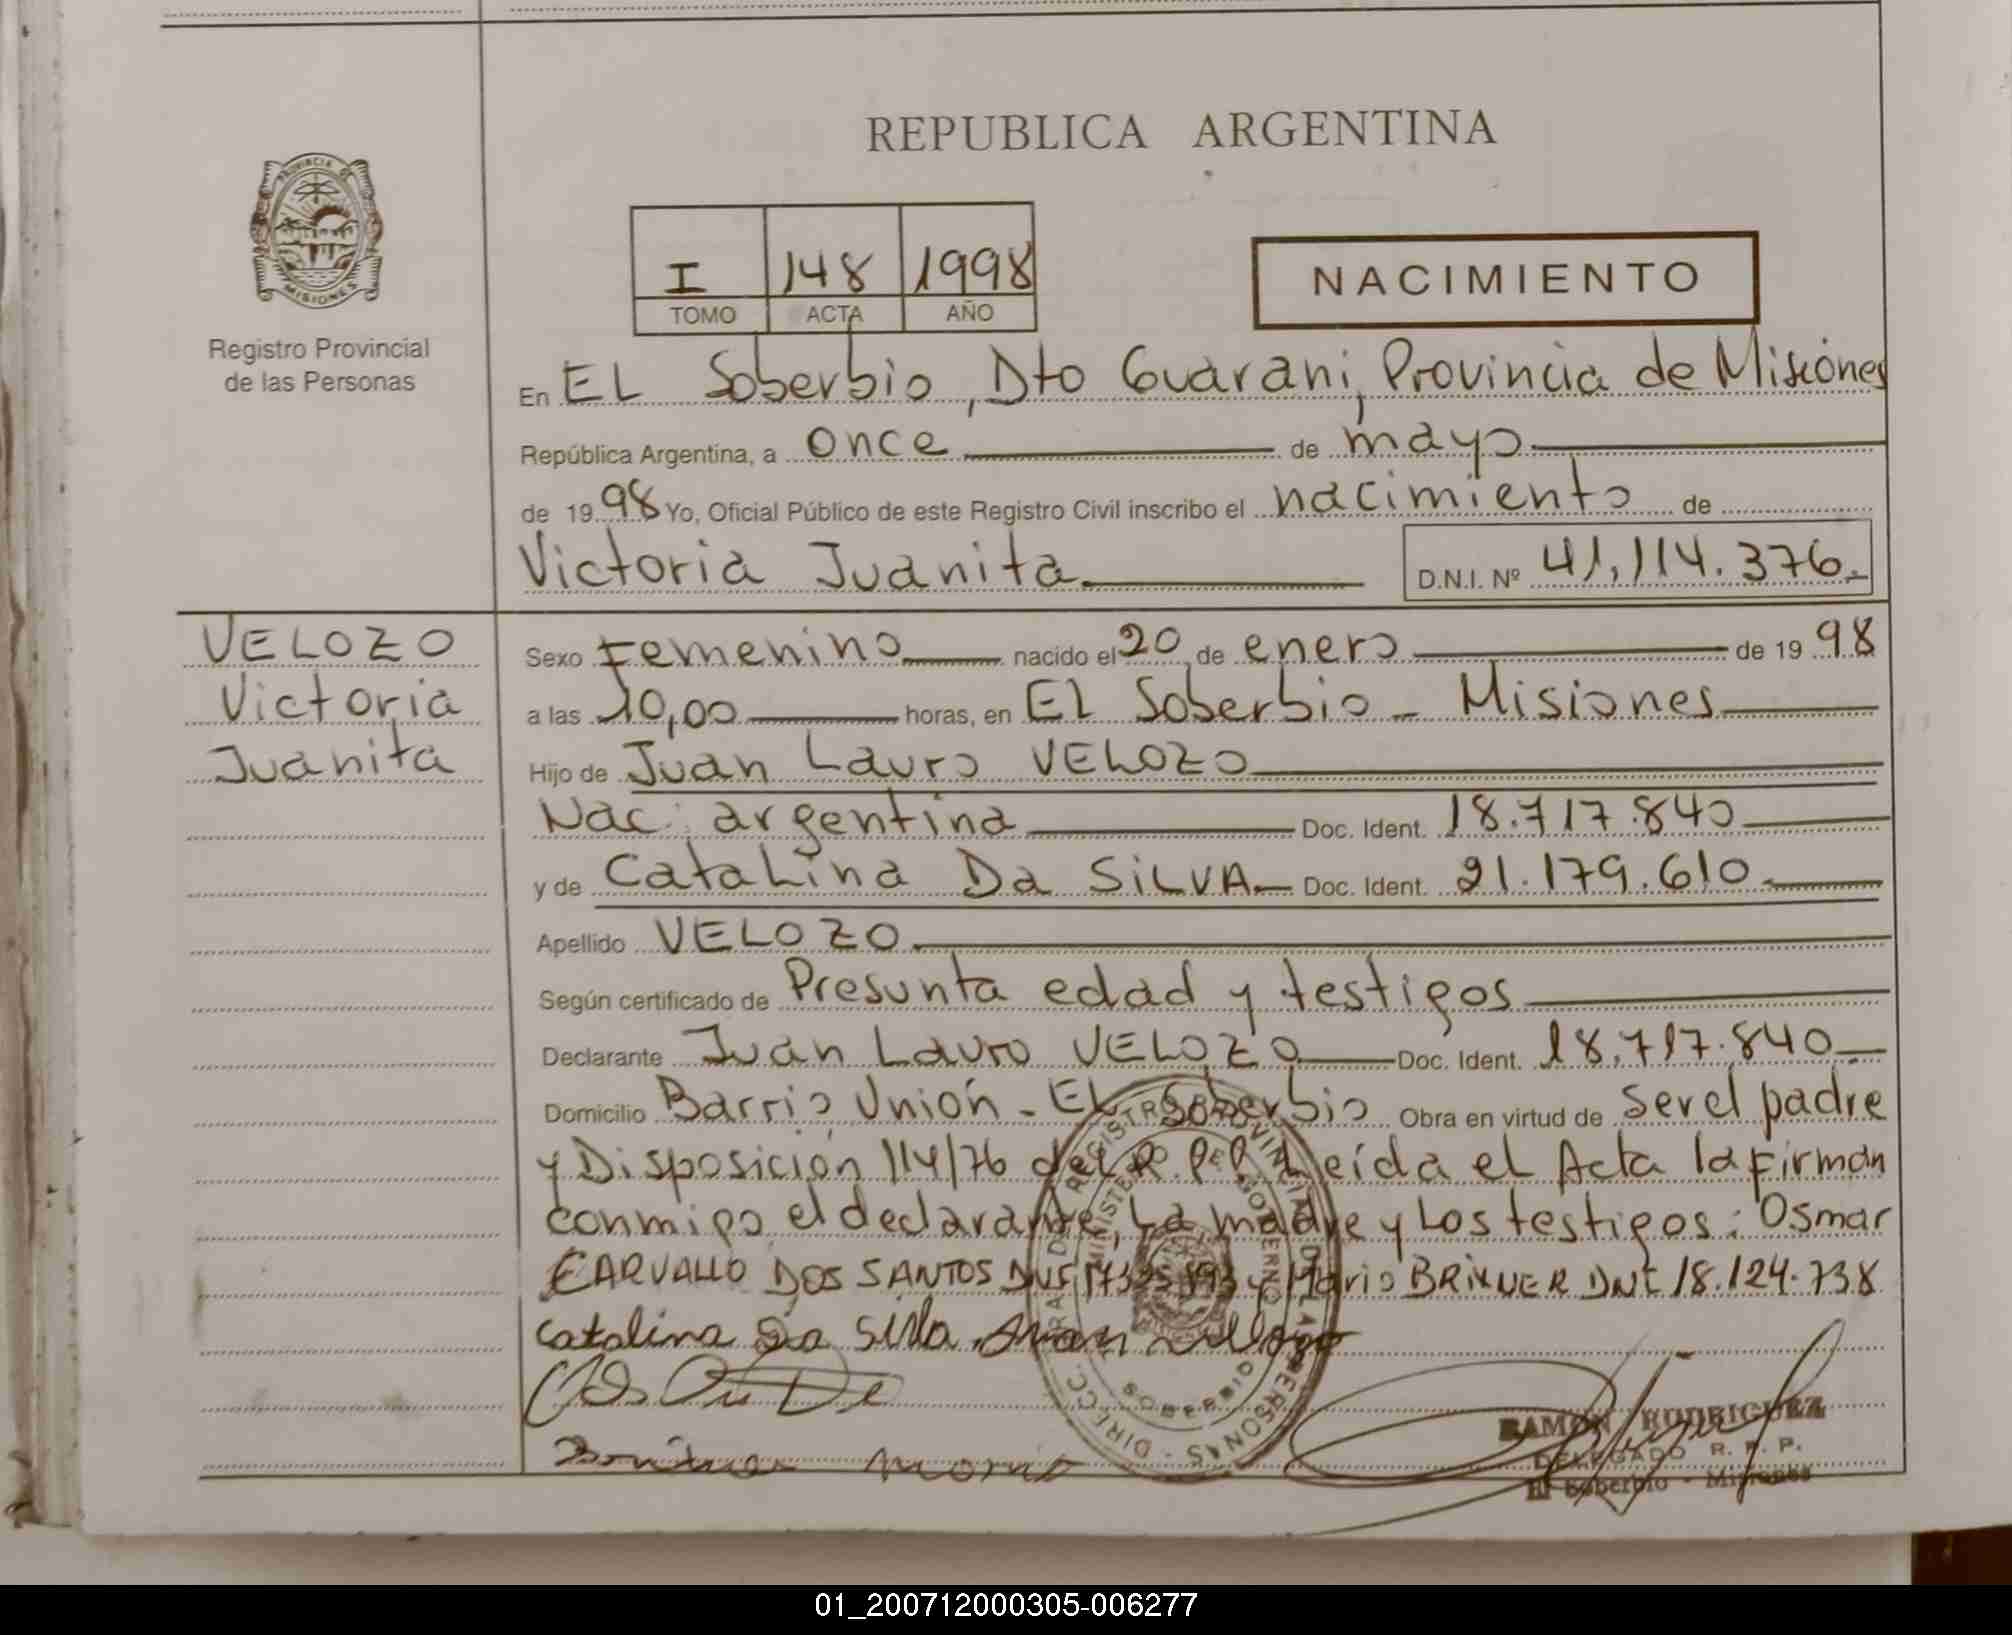 REPUBLICA ARGENTINA
PROVINCIA DE
MISIONES
Registro Provincial
de las Personas
I 148 1998
TOMO ACTA AÑO
NACIMIENTO
En EL Soberbio, Dto Guarani, Provincia de Misiones
República Argentina, a once de mayo
de 1998 Yo, Oficial Público de este Registro Civil inscribo el nacimiento de
Victoria Juanita D.N.I. Nº 41,114.376.
VELOZO
Victoria
Juanita
Sexo Femenino nacido el 20 de enero de 1998
a las 10,00 horas, en El Soberbio - Misiones
Hijo de Juan Lauro VELOZO
Nac: argentina Doc. Ident. 18.717.840
y de Catalina Da SILVA Doc. Ident. 21.179.610
Apellido VELOZO
Según certificado de Presunta edad y testigos
Declarante Juan Lauro VELOZO Doc. Ident. 18.717.840
Domicilio Barrio Unión - EL Soberbio Obra en virtud de ser el padre
y Disposición 114/76 del R.P.P. Leída el Acta la firman
conmigo el declarante, La madre y Los testigos: Osmar
CARVALLO DOS SANTOS DNI y Mario BRIXNER DNI 18.124.738
Catalina Da Silva Juan
Mario
RAMON RODRIGUEZ
DELEGADO R. P. P.
El Soberbio - Misiones
DIRECC. GRAL. DEL REGISTRO PROVINCIAL DE LAS PERSONAS
MINISTERIO DE GOBIERNO
SOBERBIO
01_200712000305-006277